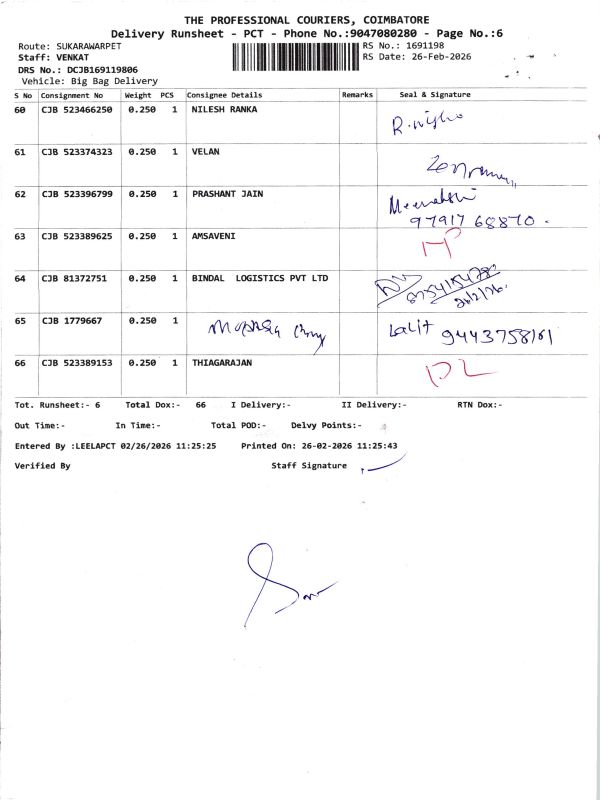 THE PROFESSIONAL COURIERS, COIMBATORE
Delivery Runsheet - PCT - Phone No.:9047080280 - Page No.:6
Route: SUKARAWARPET
RS No.: 1691198
Staff: VENKAT
RS Date: 26-Feb-2026
DRS No.: DCJB169119806
Vehicle: Big Bag Delivery
S No Consignment No Weight PCS Consignee Details Remarks Seal & Signature
60 CJB 523466250 0.250 1 NILESH RANKA
61 CJB 523374323 0.250 1 VELAN
62 CJB 523396799 0.250 1 PRASHANT JAIN Meenakshi
97917 68870.
63 CJB 523389625 0.250 1 AMSAVENI
64 CJB 81372751 0.250 1 BINDAL LOGISTICS PVT LTD
26/2/26.
65 CJB 1779667 0.250 1 Lalit 9443758161
66 CJB 523389153 0.250 1 THIAGARAJAN DL
Tot. Runsheet:- 6 Total Dox:- 66 I Delivery:- II Delivery:- RTN Dox:-
Out Time:- In Time:- Total POD:- Delvy Points:-
Entered By :LEELAPCT 02/26/2026 11:25:25 Printed On: 26-02-2026 11:25:43
Verified By Staff Signature